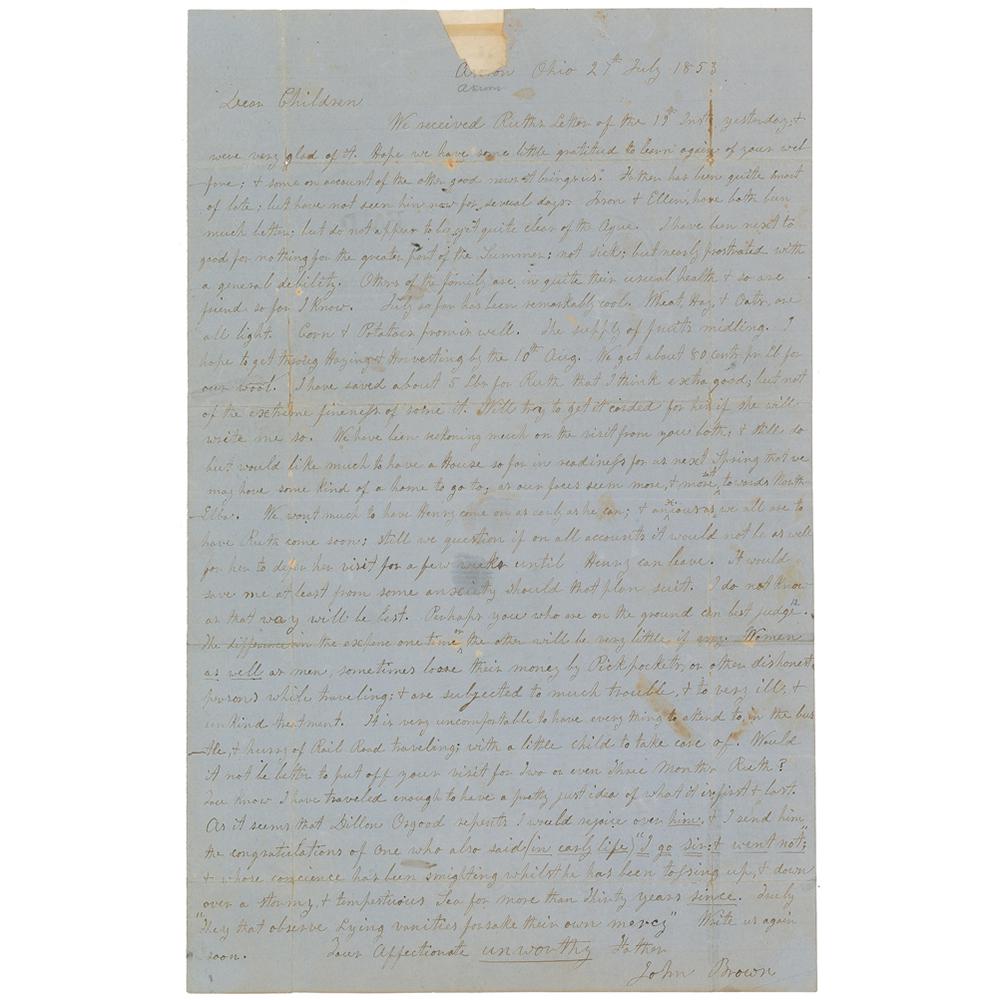 Akron Ohio 27th July 1853
Akron
Dear Children
We received Ruth's Letter of the 19th Inst yesterday; &
were very glad of it. Hope we have some little gratitud to learn again of your wel
fare; & some on account of the other good news it brings us. Father has been quite smart
of late; but have not seen him now for several days. Jason & Ellen, have both been
much better; but do not appear to get quite clear of the Ague. I have been next to
good for nothing for the greater part of the Summer; not sick; but nearly prostrated with
a general debility. Others of the family are in quite their usual health & so are
friend so far I know. July so far has been remarkably cool. Wheat, Hay, & Oats, are
all light. Corn & Potatoes promis well. The supply of fruits midling. I
hope to get throug Haying & Harvesting by the 10th Aug. We get about 80 cents pr Lb for
our wool. I have saved about 5 Lbs for Ruth that I think extra good; but not
of the extreme fineness of some it. Will try to get it carded for her if she will
write me so. We have been reckoning much on the visit from you both; & still do
but would like much to have a House so far in readiness for us next Spring that we
may have some kind of a home to go to; as our faces seem more, & more set towards North
Elba. We want much to have Henry come on as early as he can; & anxious as we all are to
have Ruth come soon; still we question if on all accounts it would not be as well
for her to defer her visit for a few weeks until Henry can leave. It would
save me at least from some anxiety should that plan suit. I do not know
as that way will be best. Perhaps you who are on the ground can best judge.
The difference in the expense one time or the other will be very little if any. Women
as well as men, sometimes loose their money by Pickpockets, or other dishonest
persons while traveling; & are subjected to much trouble, & to very ill, &
unkind treatment. It is very uncomfortable to have every thing to attend to, in the bus
tle, & hurry of Rail Road traveling; with a little child to take care of. Would
it not be better to put off your visit for Two or even Three Months Ruth?
You know I have traveled enough to have a pretty just idea of what it is first & last.
As it seems that Dillon Osgood repents I would rejoice over him, & I send him
the congratulations of one who also said (in early life) "I go sir: & went not";
& whose concience has been smighting whilst he has been tossing up, & down
over a stormy, & tempestuous Sea for more than Thirty years since. Truly
"They that observe Lying vanities forsake their own mercy" Write us again
soon. Your Affectionate unworthy Father
John Brown